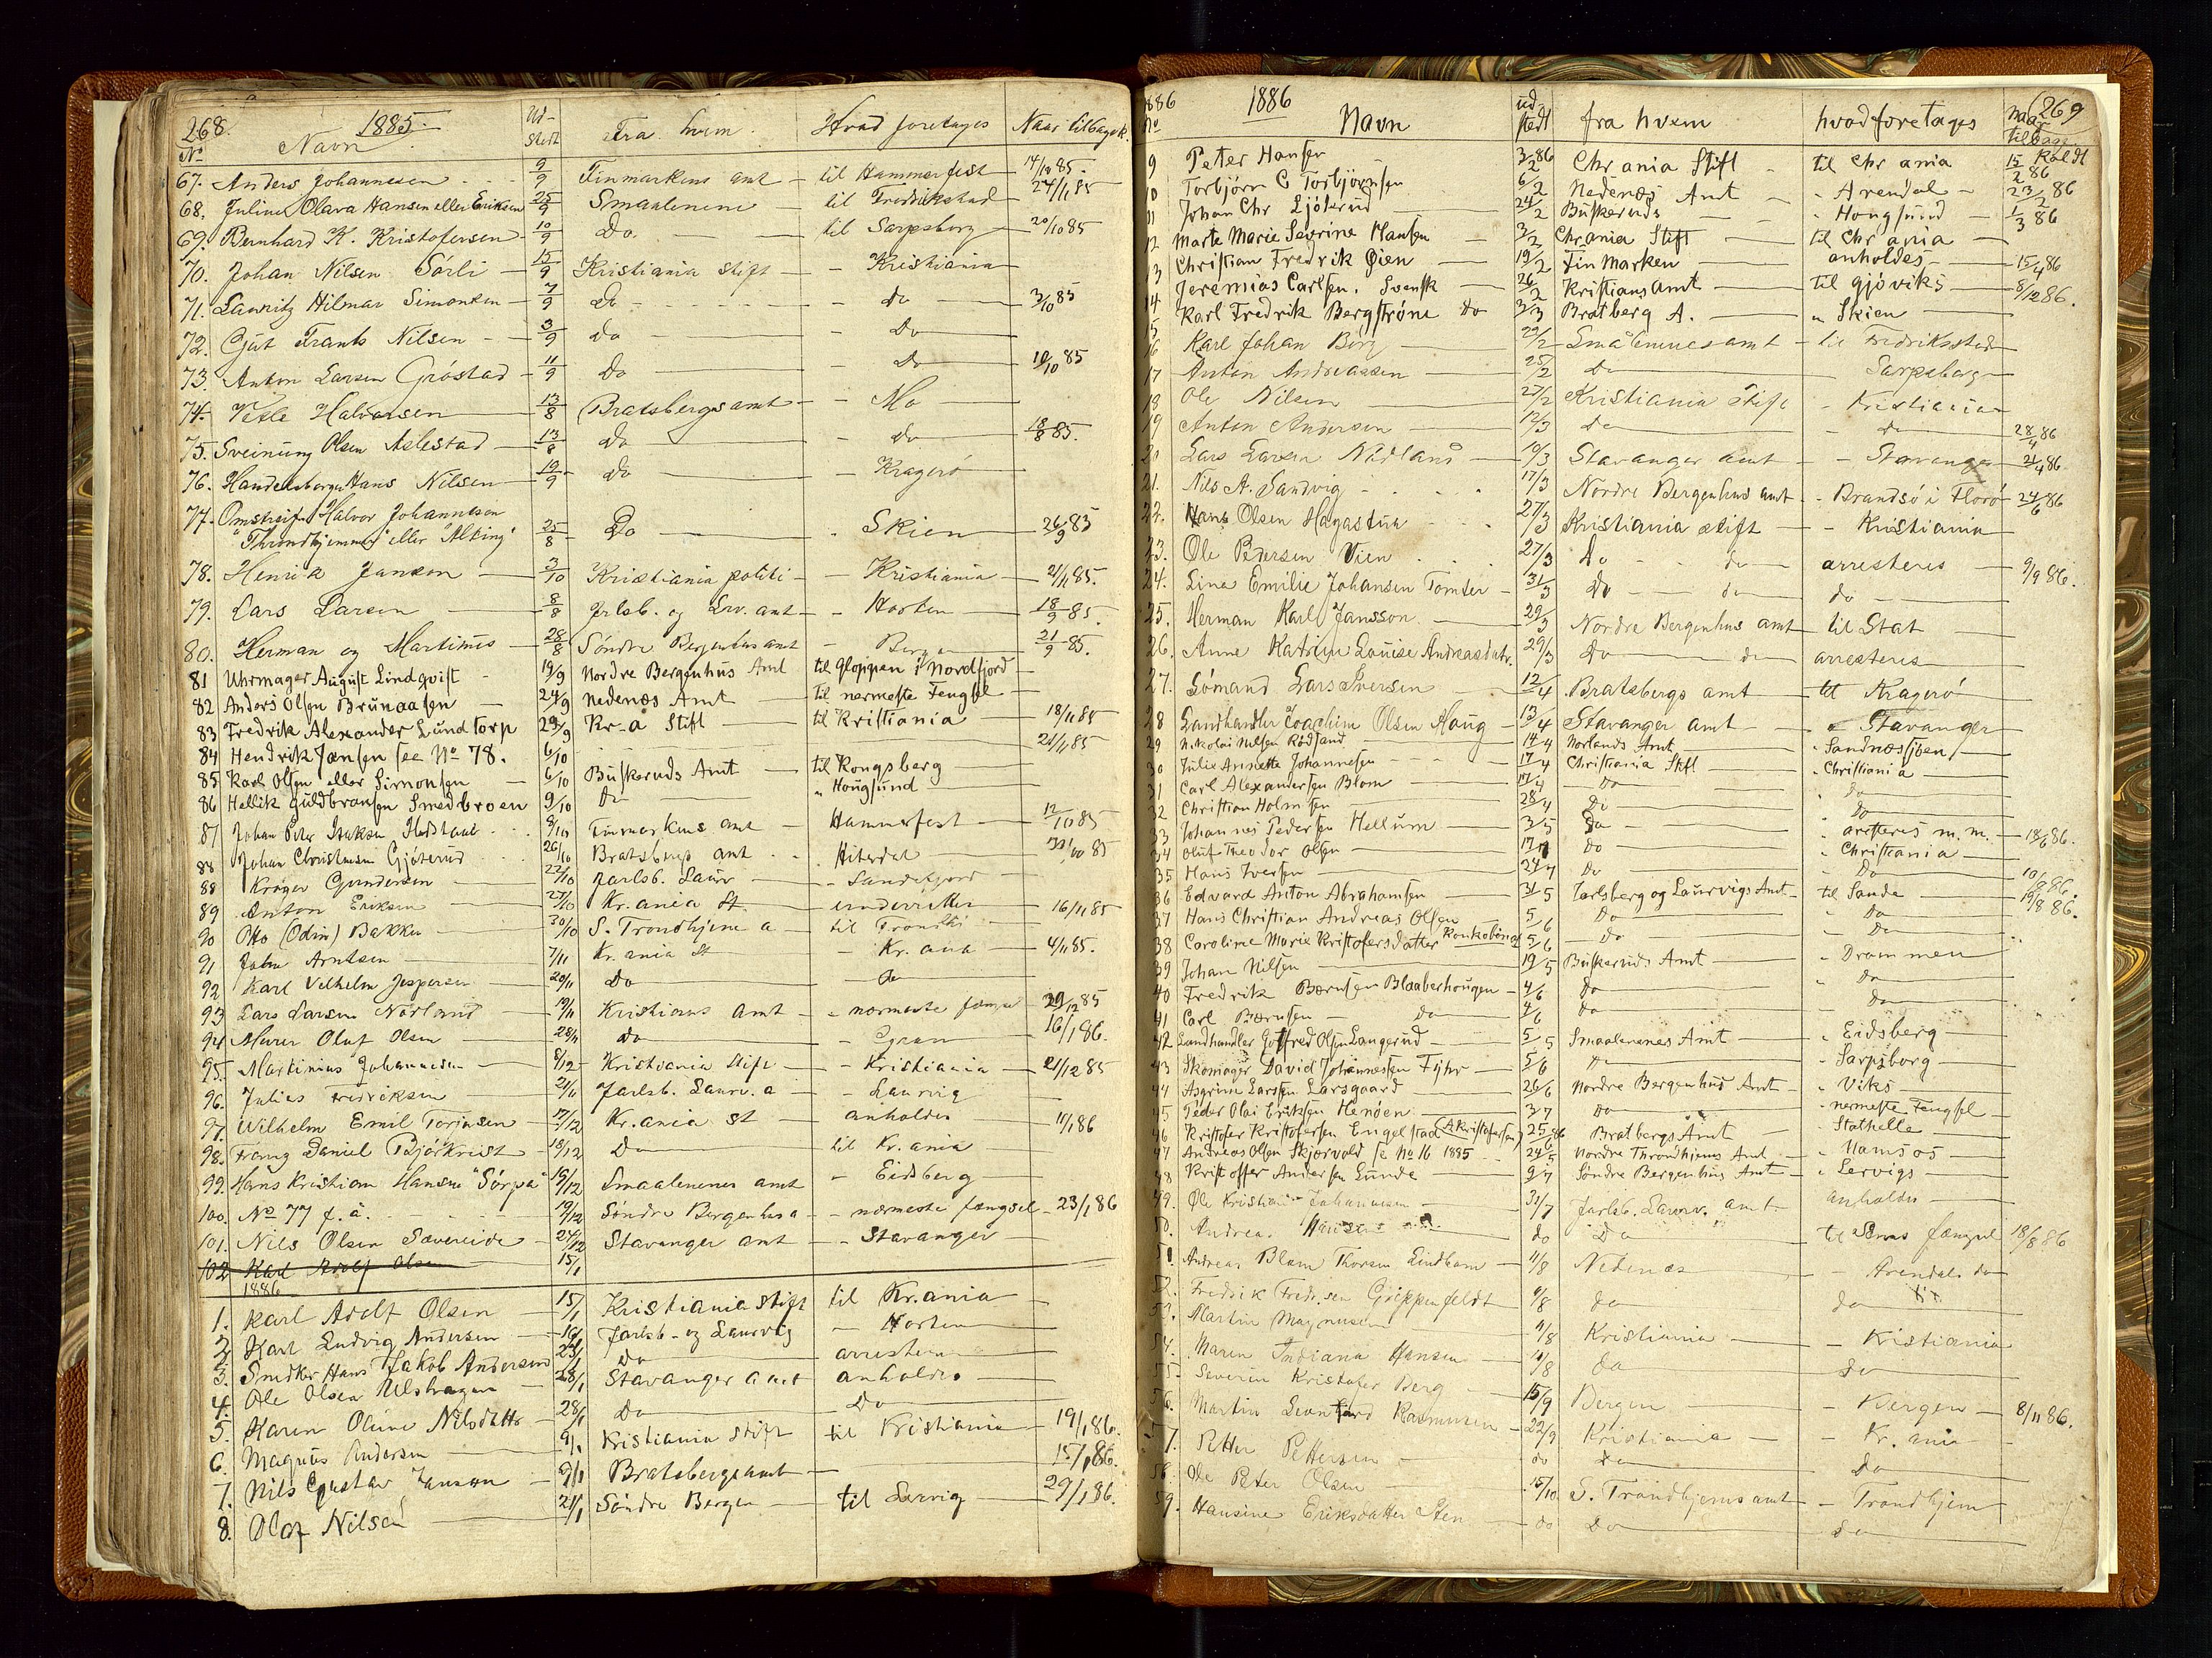 268. 1885.
No Navn Ud-stedt Fra hvem Hvad foretages Naar tilbagek.
67. Anders Johannesen 9/9 Finmarkens amt til Hammerfest 14/10 85.
68. Juline Olava Hansen eller Eriksen 25/9 Smaalenene til Fredrikstad 24/11 85
69. Bernhard K. Kristofersen 10/9 Do. til Sarpsborg 20/10 85
70. Johan Nilsen Sörli 15/9 Kristiania stift - Kristiania
71. Lauritz Hilmar Simonsen 7/9 do - do 3/10 85
72. Gut Frants Nilsen 3/9 do - Do
73. Anton Larsen Gröstad 11/9 Do - Do 19/10 85
74. Vetle Halvorsen 13/8 Bratsbergs amt - Mo
75. Sveinung Olsen Aslestad 13/8 do - do 18/8 85.
76. Handelsborger Hans Nilsen 19/9 do - Kragerö
77. Omstreif. Halvor Johannesen
"Throndhjemmer" eller "Alking" 25/8 Do - Skien 26/9 85
78. Henrik Janson 3/10 Kristiania politi - Kristiania 21/11 85.
79. Lars Larsen 8/8 Jrlsb. og Lrv. amt - Horten 18/9 85.
80. Herman og Martinus 28/8 Söndre Bergenhus amt - Bergen 21/9 85.
81 Uhrmager August Lindqvist 19/9 Nordre Bergenhus Amt til Gloppen i Nordfjord
82 Anders Olsen Brunaasen 24/9 Nedenæs Amt til nermeste Fengsel
83 Fredrik Alexander Lundtorp 29/9 Kr-a Stift til Kristiania 18/11 85
84 Hendrik Jansen see No 78. 6/10 21/11 85
85 Karl Olsen eller Simonsen 6/10 Buskeruds Amt til Kongsberg
86 Hellik Guldbransen Smedbroen 9/10 Do " Hougsund
87 Johan Peter Isaksen 8/10 Finmarkens amt - Hammerfest 12/10 85
88 Johan Christensen Gjöterud 26/10 Bratsberg amt - Hiterdal 85
88 Kröger Gundersen 27/10 Jarlsb. Laurv - Sandefjord
89 Anton Eriksen 27/10 Kr.ania St. underretter 16/11 85
90 Otto (Odin) Bakke 30/10 S. Trondhjems a til Trondhj
91 John Arntsen 7/11 Kr. ania St - Kr. ania 4/11 85.
92 Karl Vilhelm Jespersen 20/11 Do - Do
93 Lars Larsen Nörland 19/11 Kristians Amt - nærmeste fængsel 29/12 85
94 Murer Oluf Olsen 28/11 do - Gran 16/1 86.
95. Martinius Johannesen 8/12 Kristiania Stift - Kristiania 21/12 85
96. Julius Fredriksen 21/11 Jarlsb. Laurv. a - Laurvig
97. Wilhelm Emil Torjusen 7/12 Kr. ania st anholdes 11/1 86
98. Frang Daniel Björkrist 18/12 Do til Kr. ania
99. Hans Kristian Hansen "Sörpa" 16/12 Smaalenenes amt - Eidsberg
100. No 77 f. å. 19/12 Söndre Bergenhus a - nærmeste fængsel 23/1 86
101. Nils Olsen Sævereide 24/12 Stavanger amt - Stavanger
102 Karl Adolf Olsen 15/1
1886
1. Karl Adolf Olsen 15/1 Kristiania stift til Kr.ania
2. Karl Ludvig Andersen 16/1 Jarlsb. og Laurvig - Horten
3. Snedker Hans Jakob Andersen 23/1 Do arresteres
4. Ole Olsen Ulshagen 28/1 Stavanger amt anholdes
5. Karen Oline Nilsdatter 28/1 Do Do
6. Magnus Andersen 9/1 Kristiania Stift til Kristiania 19/1 86.
7. Nils Gustav Janson 9/1 Bratsbergs amt 15/1 86.
8. Olaf Nilsen 21/1 Söndre Bergen til Lervig 29/1 86.
1886 1886 269
No Navn ud-stedt fra hvem hvad foretages naar tilbagekaldt
9 Peter Hansen 3/2 86 Chr ania Stift til Chr ania 15/2 86
10 Torbjörn C Torbjörnsen 6/2 Nedenæs Amt " Arendal 23/2 86
11 Johan Chr Ljöterud 24/2 Buskeruds " Hougsund 1/3 86
12 Marte Marie Severine Hansen 3/2 Chr.ania Stift til Chr ania
13 Christian Fredrik Øien 19/2 Finmarken anholdes 15/4 86
14 Jeremias Carlsen. Svensk 26/2 Kristians Amt til Gjöviks 8/12 86.
15 Karl Fredrik Bergströne do 3/3 Bratberg A. " Skien
16 Karl Johan Berg 22/2 Smålenenes amt til Fredriksstad
17 Anton Andreassen 25/2 Do Sarpsborg
18 Ole Nilsen 27/2 Kristiania Stift - Kristiania
19 Anton Andersen 12/3 Do - do 28/4 86
20 Lars Larsen Nådland 19/3 Stavanger amt - Stavanger 21/4 86
21. Nils A. Sandvig 17/3 Nordre Bergenhus amt - Brandsö i Florö 24/6 86
22. Hans Olsen Hagastua 27/3 Kristiania stift - Kristiania
23. Ole Pedersen Vien 27/3 Do do arresteres 9/9 86.
24. Lina Emilie Johansen Tomter 31/3 Do do do
25. Herman Karl Jansson 29/3 Nordre Bergenhus amt til Stat
26. Anne Katrine Louise Andreasdatr. 29/3 Do do arresteres
27. Sömand Lars Iversen 12/4 Bratsbergs amt til Kragerö
28 Landhandler Joachim Olsen Haug 13/4 Stavanger amt - Stavanger
29 Nikolai Nilsen Rödsand 14/4 Norlands Amt " Sandnæssjöen
30 Julie Annette Johannesen 17/4 Christiania Stift " Christiania
31 Carl Alexandersen Blom 17/4 Do " Do
32 Christian Holmsen 28/4 Do Do
33 Johannes Pedersen Hellum 3/5 Do " aresteres m. m. 18/6 86.
34 Oluf Theodor Olsen Do " Christiania
35 Hans Iversen Do " Do
36 Edvard Anton Abrahamsen 31/5 Jarlsberg og Laurvigs Amt til Sande 10/8 86.
37 Hans Christian Andreas Olsen 5/6 Do " Do 19/8 86.
38 Caroline Marie Kristofersdatter Konkobine 5/6 Do " Do
39 Johan Nilsen 19/5 Buskeruds Amt " Drammen
40 Fredrik Bærnsen Blaaberhougen 4/6 Do Do
41 Carl Bærnsen Do 4/6 Do Do
42 Landhandler Gotfred Olsen Langerud 5/5 Smaalenenes Amt " Eidsberg
43 Skomager David Johannessen Fyhr 5/6 Do " Sarpsborg
44 Asgrim Larssen Larsgaard 26/6 Nordre Bergenhus Amt " Viks
45 Peder Olai Eriksen Henöen 3/7 Do " nermeste Fengsel
46 Kristofer Kristofersen Engelstad (A Kristofersen) 25/6 86 Bratbergs Amt " Stathelle
47 Andreas Olsen Skjærvold se No 16 1885 24/5 Nordre Throndhjems Amt " Namsos
48 Kristoffer Andersen Lunde 9/7 Söndre Bergenhus Amt " Lervigs
49. Ole Kristian Johannesen 31/7 Jarlsb. Laurv. amt anholdes
50. Andrea Hansen do Do til fængsel 18/8 86
51. Andreas Blom Thorsen Eindbom 4/8 Nedenæs - Arendals do
52. Fredrik Fredr.sen Grippenfeldt 4/8 do do
53. Martin Magnusen 4/8 Kristiania - Kristiania
54. Maren Indiana Hansen do do
55. Severin Kristofer Berg 15/9 Bergen - Bergen 8/11 86.
56. Martin Leonhard Rasmussen 22/9 Kristiania - Kr. ania
57. Petter Pettersen do Do Do
58. Ole Peter Olsen 15/10 S. Trondhjems amt - Trondhjem
59. Hansine Eriksdatter Sten do Do do